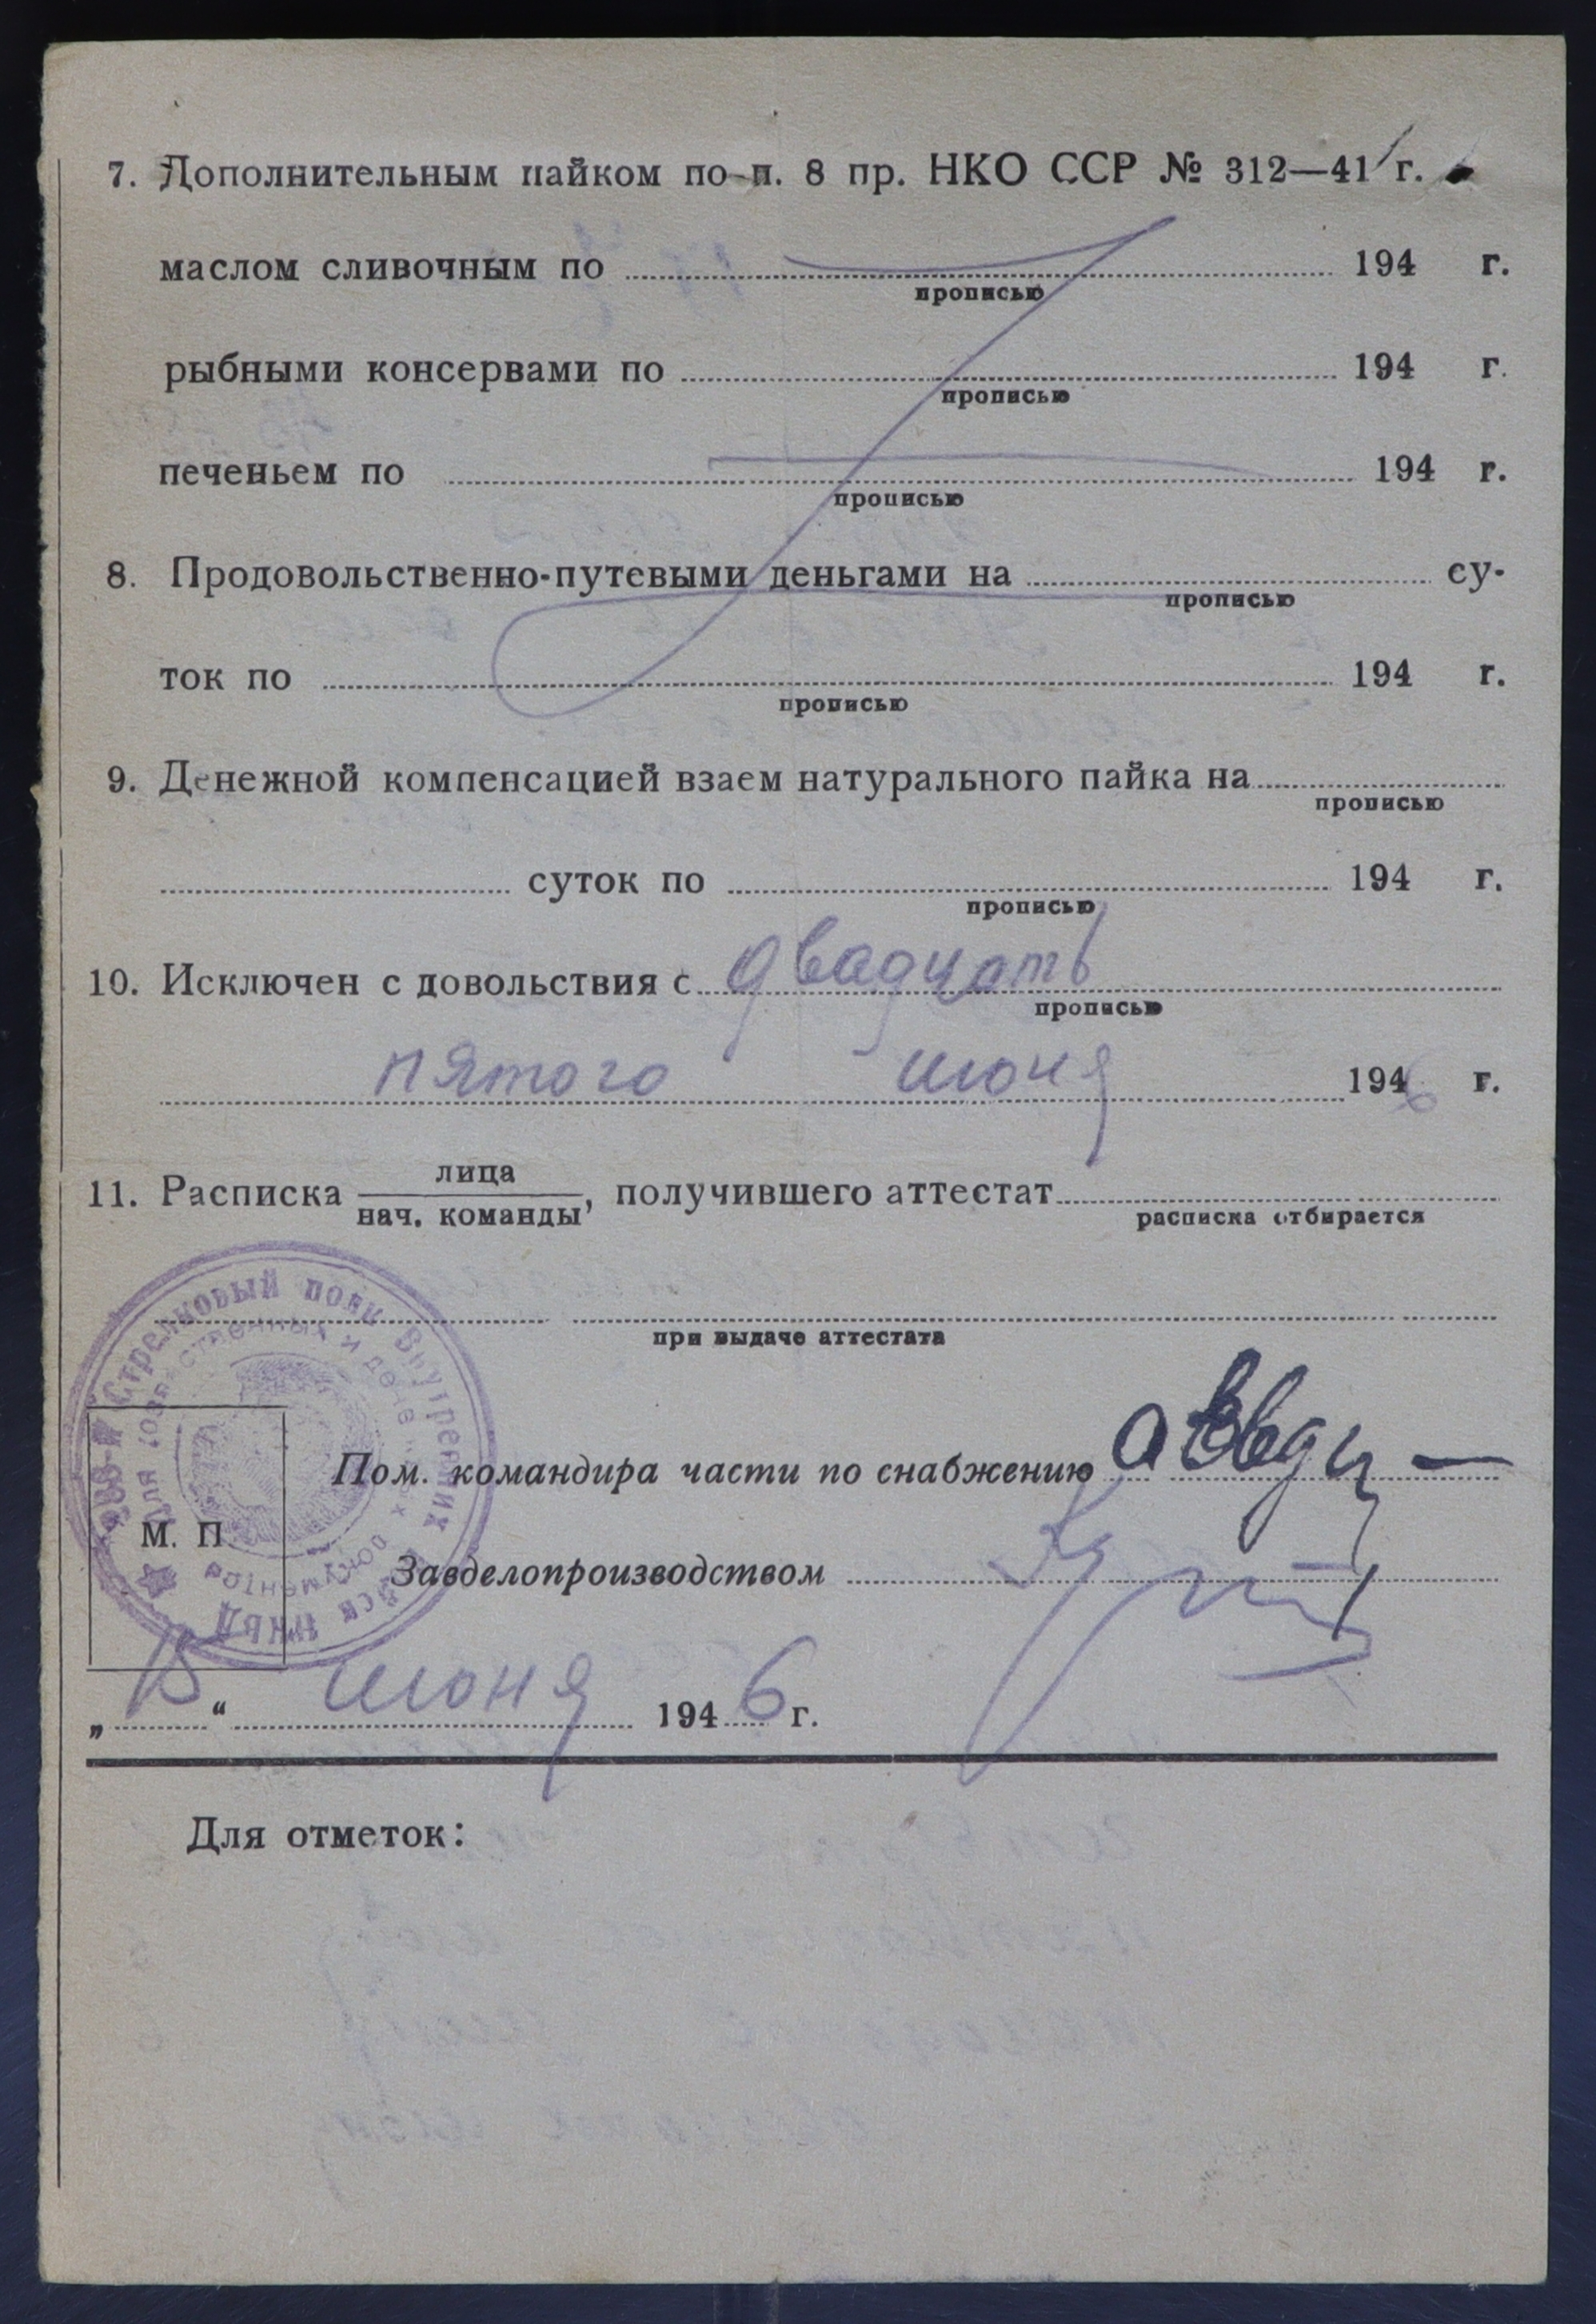 7. Дополнительным пайком по п. 8 пр. НКО ССР № 312—41 г.
маслом сливочным по 194 г.
прописью
рыбными консервами по 194 г.
прописью
печеньем по 194 г.
прописью
8. Продовольственно-путевыми деньгами на су-
прописью
ток по 194 г.
прописью
9. Денежной компенсацией взаем натурального пайка на
прописью
суток по 194 г.
прописью
10. Исключен с довольствия с двадцать
прописью
пятого июня 1946 г.
11. Расписка лица / нач. команды, получившего аттестат
расписка отбирается
при выдаче аттестата
Стрелковый полк Внутренних Войск НКВД
Для хозяйственных и денежных документов
Пом. командира части по снабжению
М. П.
Завделопроизводством
„ “ июня 1946 г.
Для отметок: